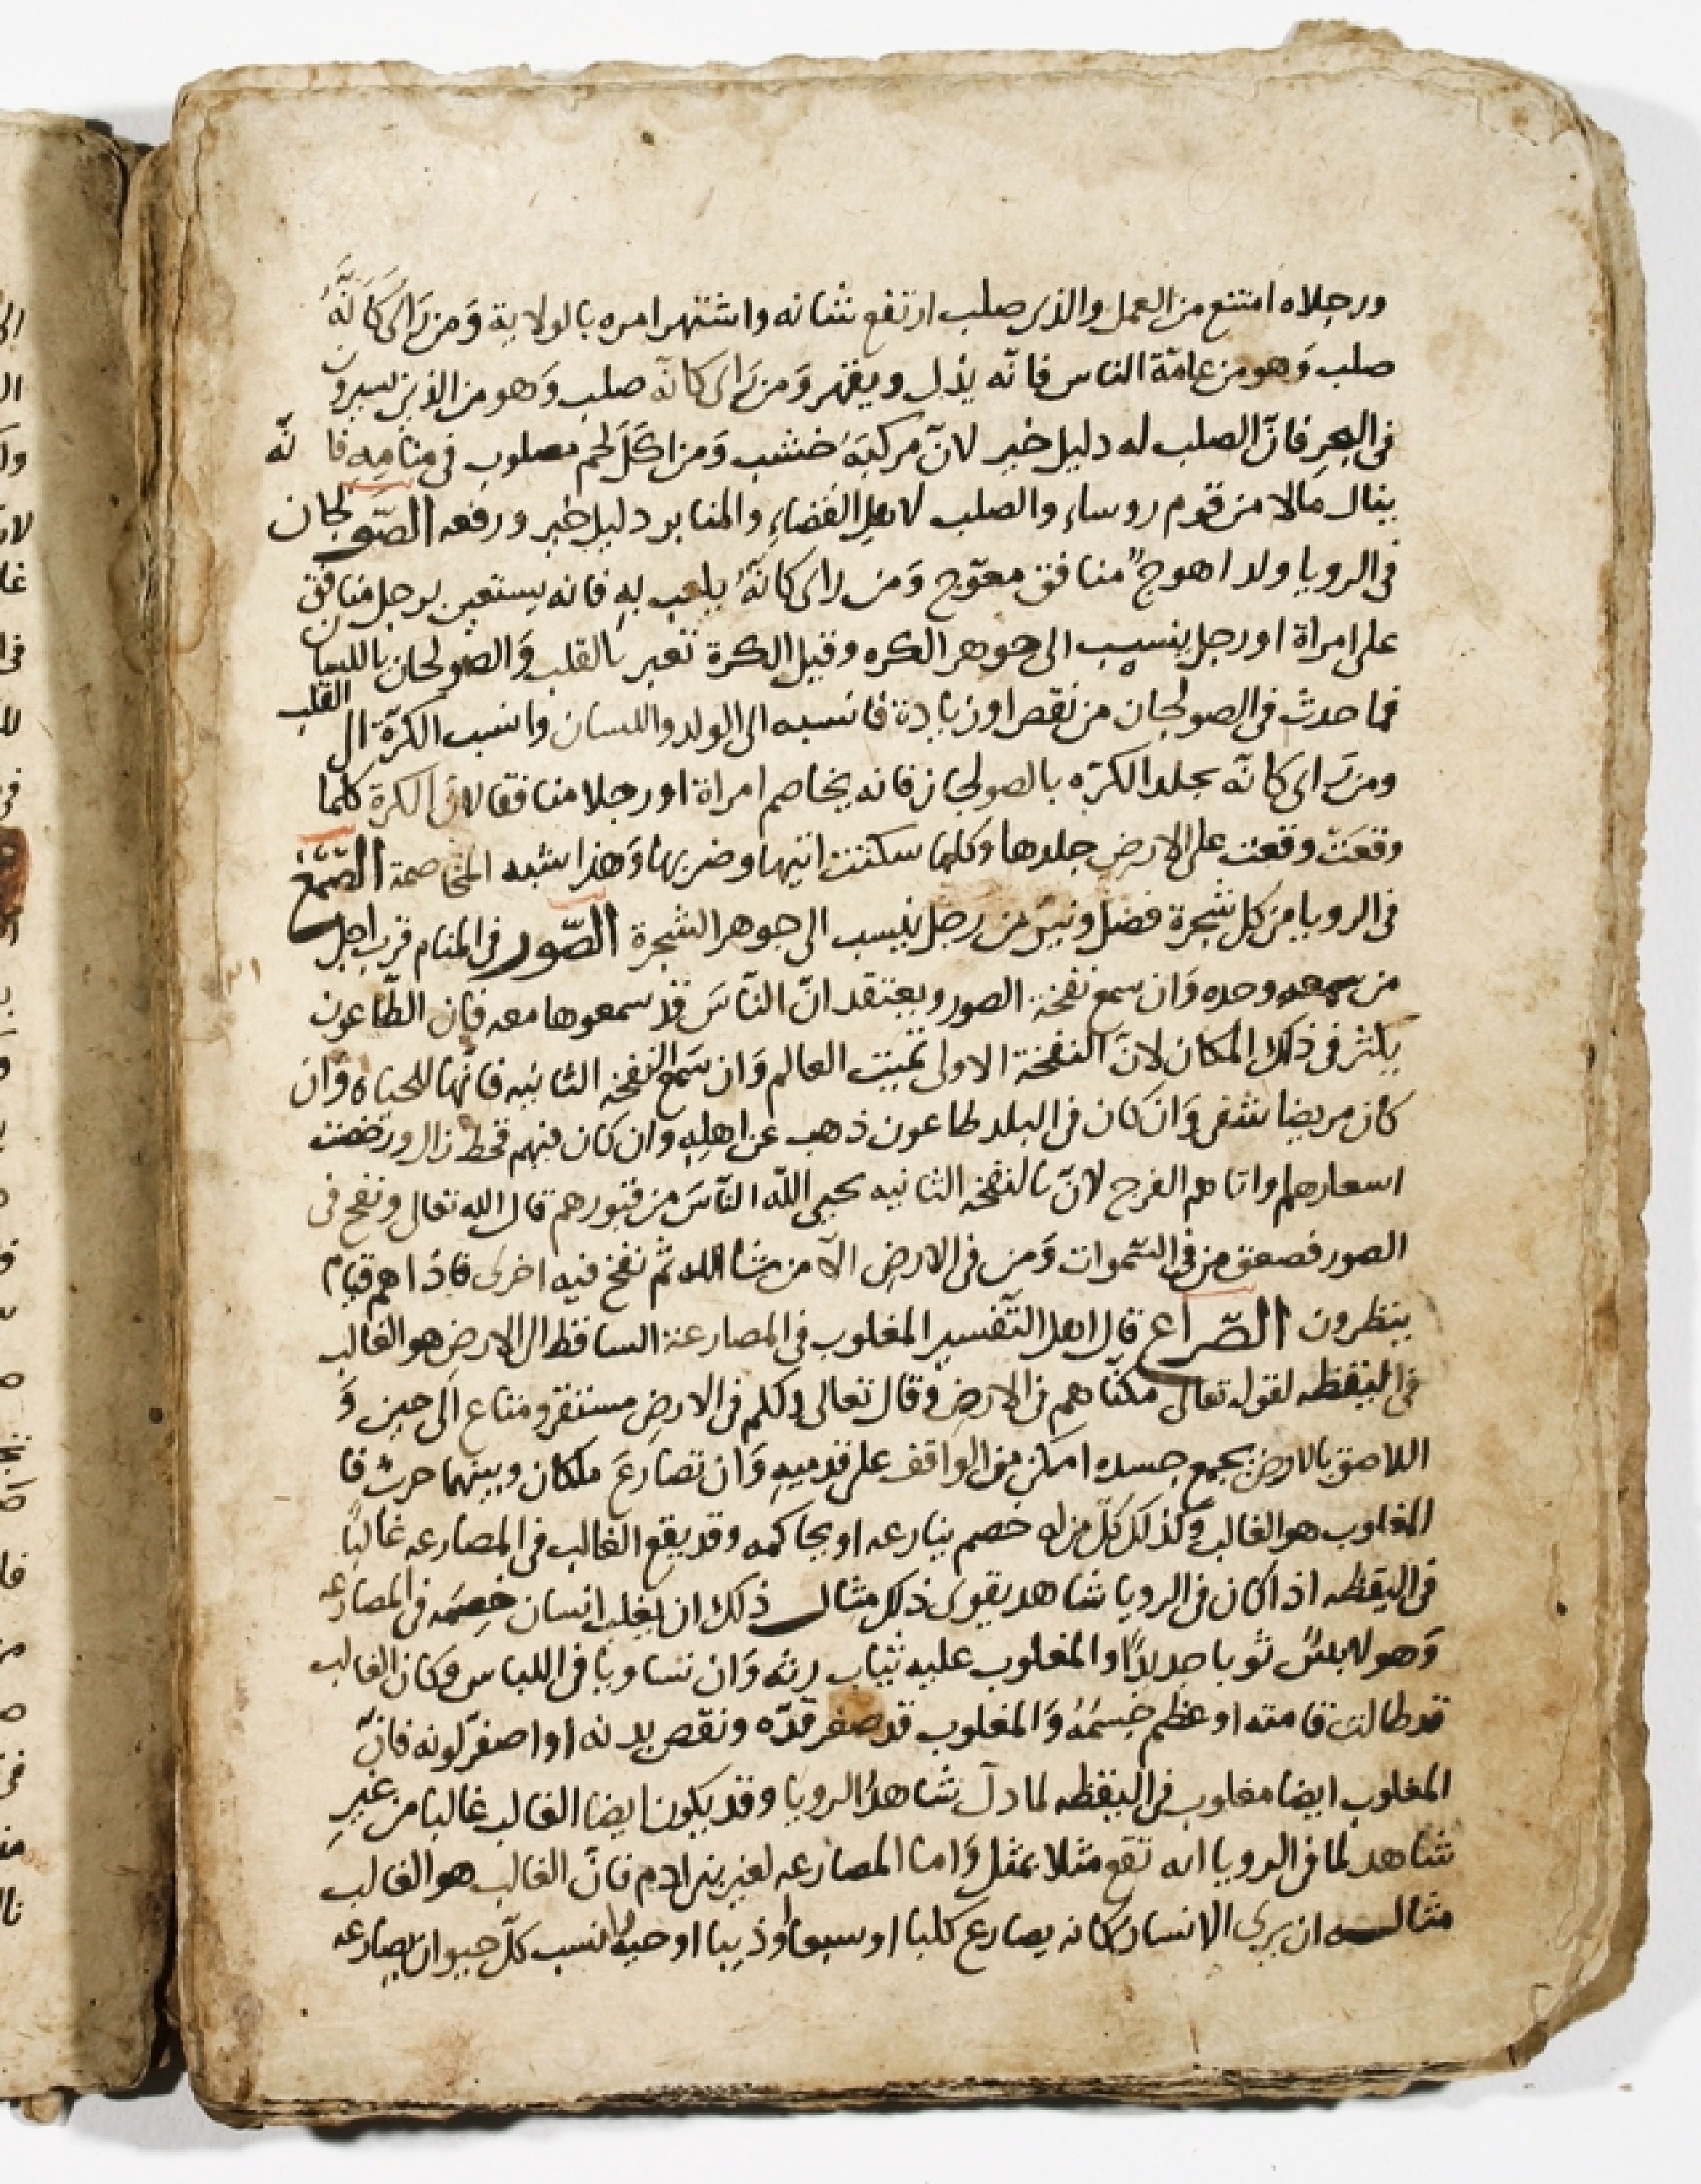 ورجلاه امتنع من العمل والذي صلب ارتفع شانه واشتهر امره بالولاية وَمن رَاى كَاَنَّهُ
صلب وَهو من عامّة الناس فانّه يذل ويقهر وَمن رَاى كانّه صلب وَهو من الذين يسيرون
فى البحرِ فانّ الصلب له دليل خير لانّ مركبَهُ خشب وَمن اكَلَ لحم مصلوب فى منامِهِ فا نّه
ينال مَالا من قوم روساءِ والصلب لاهل القضاءِ والمنابر دليل خير ورفعه الصّولجان
فى الرويا ولد اهوج منافق معوّج وَمن راى كانّهُ يلعب بهِ فانه يستعين برجل منافق
على امراة او رجل ينسب الى جوهر الكره وقيل الكرة تعبر بالقلب وَالصولجان باللسان
فما حدث فى الصولجان من نقص او زيادة فانسبه الى الولد واللسان وانسب الكرّة الى القلب
ومن رَاى كانّه يجلد الكرّه بالصولجان فانه يخاصم امراة او رجلا منافقا لانّ الكرة كلما
وقعَت وقعت على الارض جلدها وكلما سكنت اتيها وضربها وَهذا يشبه المخاصمة الصّمغ
فى الرويا من كل شجرة فضل ونيل من رجل ينسب الى جوهر الشجرة الصّور فى المنام قرب اجل
من سمعه وحده وَان سمع نفخة الصور ويعتقد انّ النّاسَ قد سمعوها معه فان الطّاعون
يكثر فى ذلك المكان لانّ النفخة الاولى تميت العالم وَان سَمع النفخه الثانيه فانّها للحياه وَان
كان مريضا شفى وَان كان فى البلد طاعون ذهب عن اهلِهِ وان كان فيهم قحط زال ورخصت
اسعارهم واتاهم الفرج لانّ بالنفخه الثانيه يحيى اللّه النّاسَ من قبورهم قال الله تعالى ونفخ فى
الصور فصعق من فى السّموات وَمن فى الارض الاّ من شا الله ثم نفخ فيه اخرى فاذا هم قيام
ينظرون الصّراع قال اهل التّفسير المغلوب فى المصارعة الساقط الى الارض هو الغالب
فى اليقظه لقوله تعالى مكنّاهم فى الارض وقال تعالى ولكم فى الارضِ مستقر ومتاع الَى حين وَ
اللاصق بالارض بجميع جسده امكن من الواقف على قدميهِ وَان تصارعَ ملكان وبينهما حرب فا
المغلوب هو الغالب وكذلك كلّ من له خصم ينازعه او يحاكمه وقد يقع الغالب فى المصارعه غالبًا
فى اليقظه اذا كان فى الرويا شاهد يقوى ذلك مثال ذلك ان يغلب انسان خصِمَه فى المصارعه
وَهو لابسٌ ثوبا جديدًا والمغلوب عليه ثياب رثه وَان تساويا فى اللباس وكان الغالب
قد طالت قامته او عظم جسمُهُ وَالمغلوب قد صغر قدّه ونقص بدنه او اصفرّ لونه فانّ
المغلوب ايضا مغلوب فى اليقظه لما دلّ شاهدُ الرويا وقد يكون ايضا الغالب غالبا من غير
شاهد لما فى الرويا انه تقع مثلا بمثل وَاما المصارعه لغير بنى ادم فانّ الغالب هو الغالب
مثاله ان يرى الانسان كانه يصارع كلبا او سبعا او ذيبا او حية انسب كلّ حيوان يصارعه